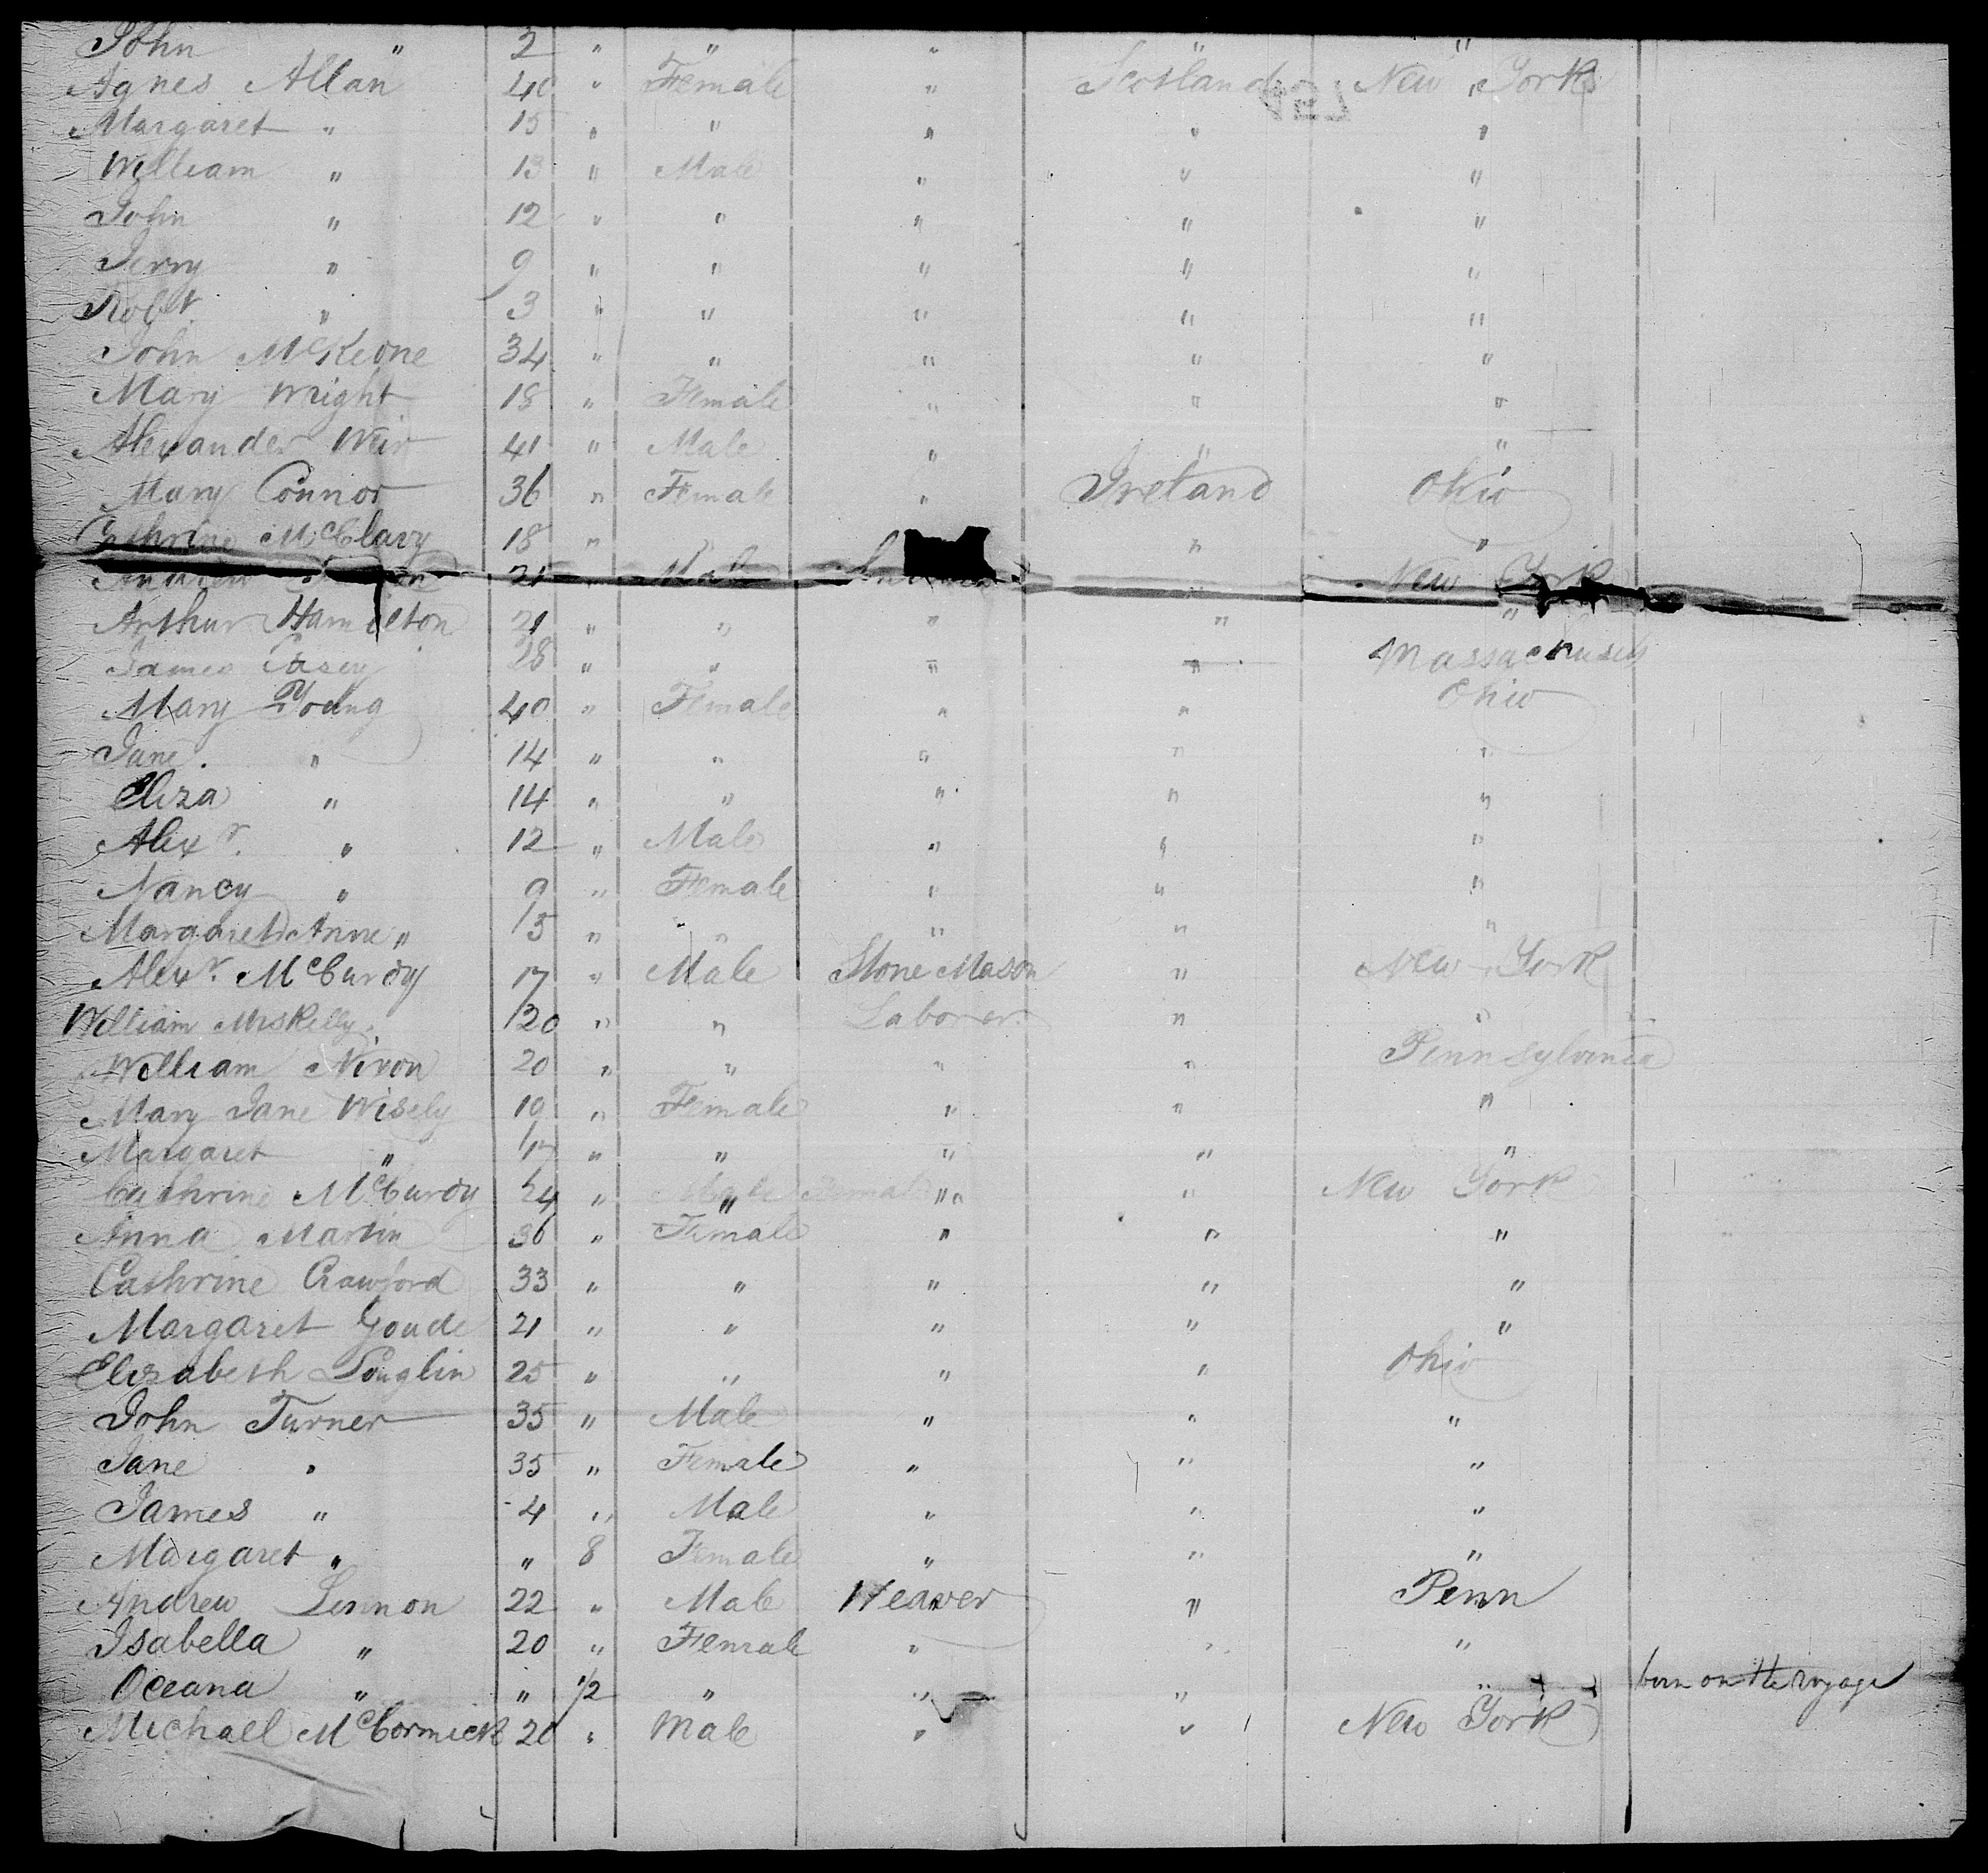 John " 2 " " " " "
Agnes Allan 40 " Female " Scotland New York
Margaret " 15 " " " " "
William " 13 " Male " " "
John " 12 " " " " "
Jerry " 9 " " " " "
Robt. " 3 " " " " "
John McKeone 34 " " " " "
Mary Wright 18 " Female " " "
Alexander Weir 41 " Male " " "
Mary Connor 36 " Female " Ireland Ohio
Cathrine McClavy 18 " " " "
Andrew 21 " Male " New York
Arthur Hamilton 21 " " " " "
James Casey 28 " " " " Massachusets
Mary Young 40 " Female " " Ohio
Jane. " 14 " " " " "
Eliza " 14 " " " " "
Alexr. " 12 " Male " " "
Nancy " 9 " Female " " "
Margaret Anne " 15 " " " " "
Alexr. McCurdy 17 " Male Stone Mason " New York
William Miskelly 20 " " Laborer " "
William Nixon 20 " " " " Pennsylvania
Mary Jane Wisely 19 " Female " " "
Margaret " 17 " " " " "
Cathrine McCurdy 24 " Male Female " " New York
Anna Martin 36 " Female " " "
Cathrine Crawford 33 " " " " "
Margaret Goude 21 " " " " "
Elizabeth 25 " " " " Ohio
John Turner 35 " Male " " "
Jane " 35 " Female " " "
James " 4 " Male " " "
Margaret " " 8 Female " " "
Andrew Lennon 22 " Male Weaver " Penn
Isabella " 20 " Female " " "
Oceana " " 1/2 " " " " born on the voyage
Michael McCormick 20 " Male " " New York